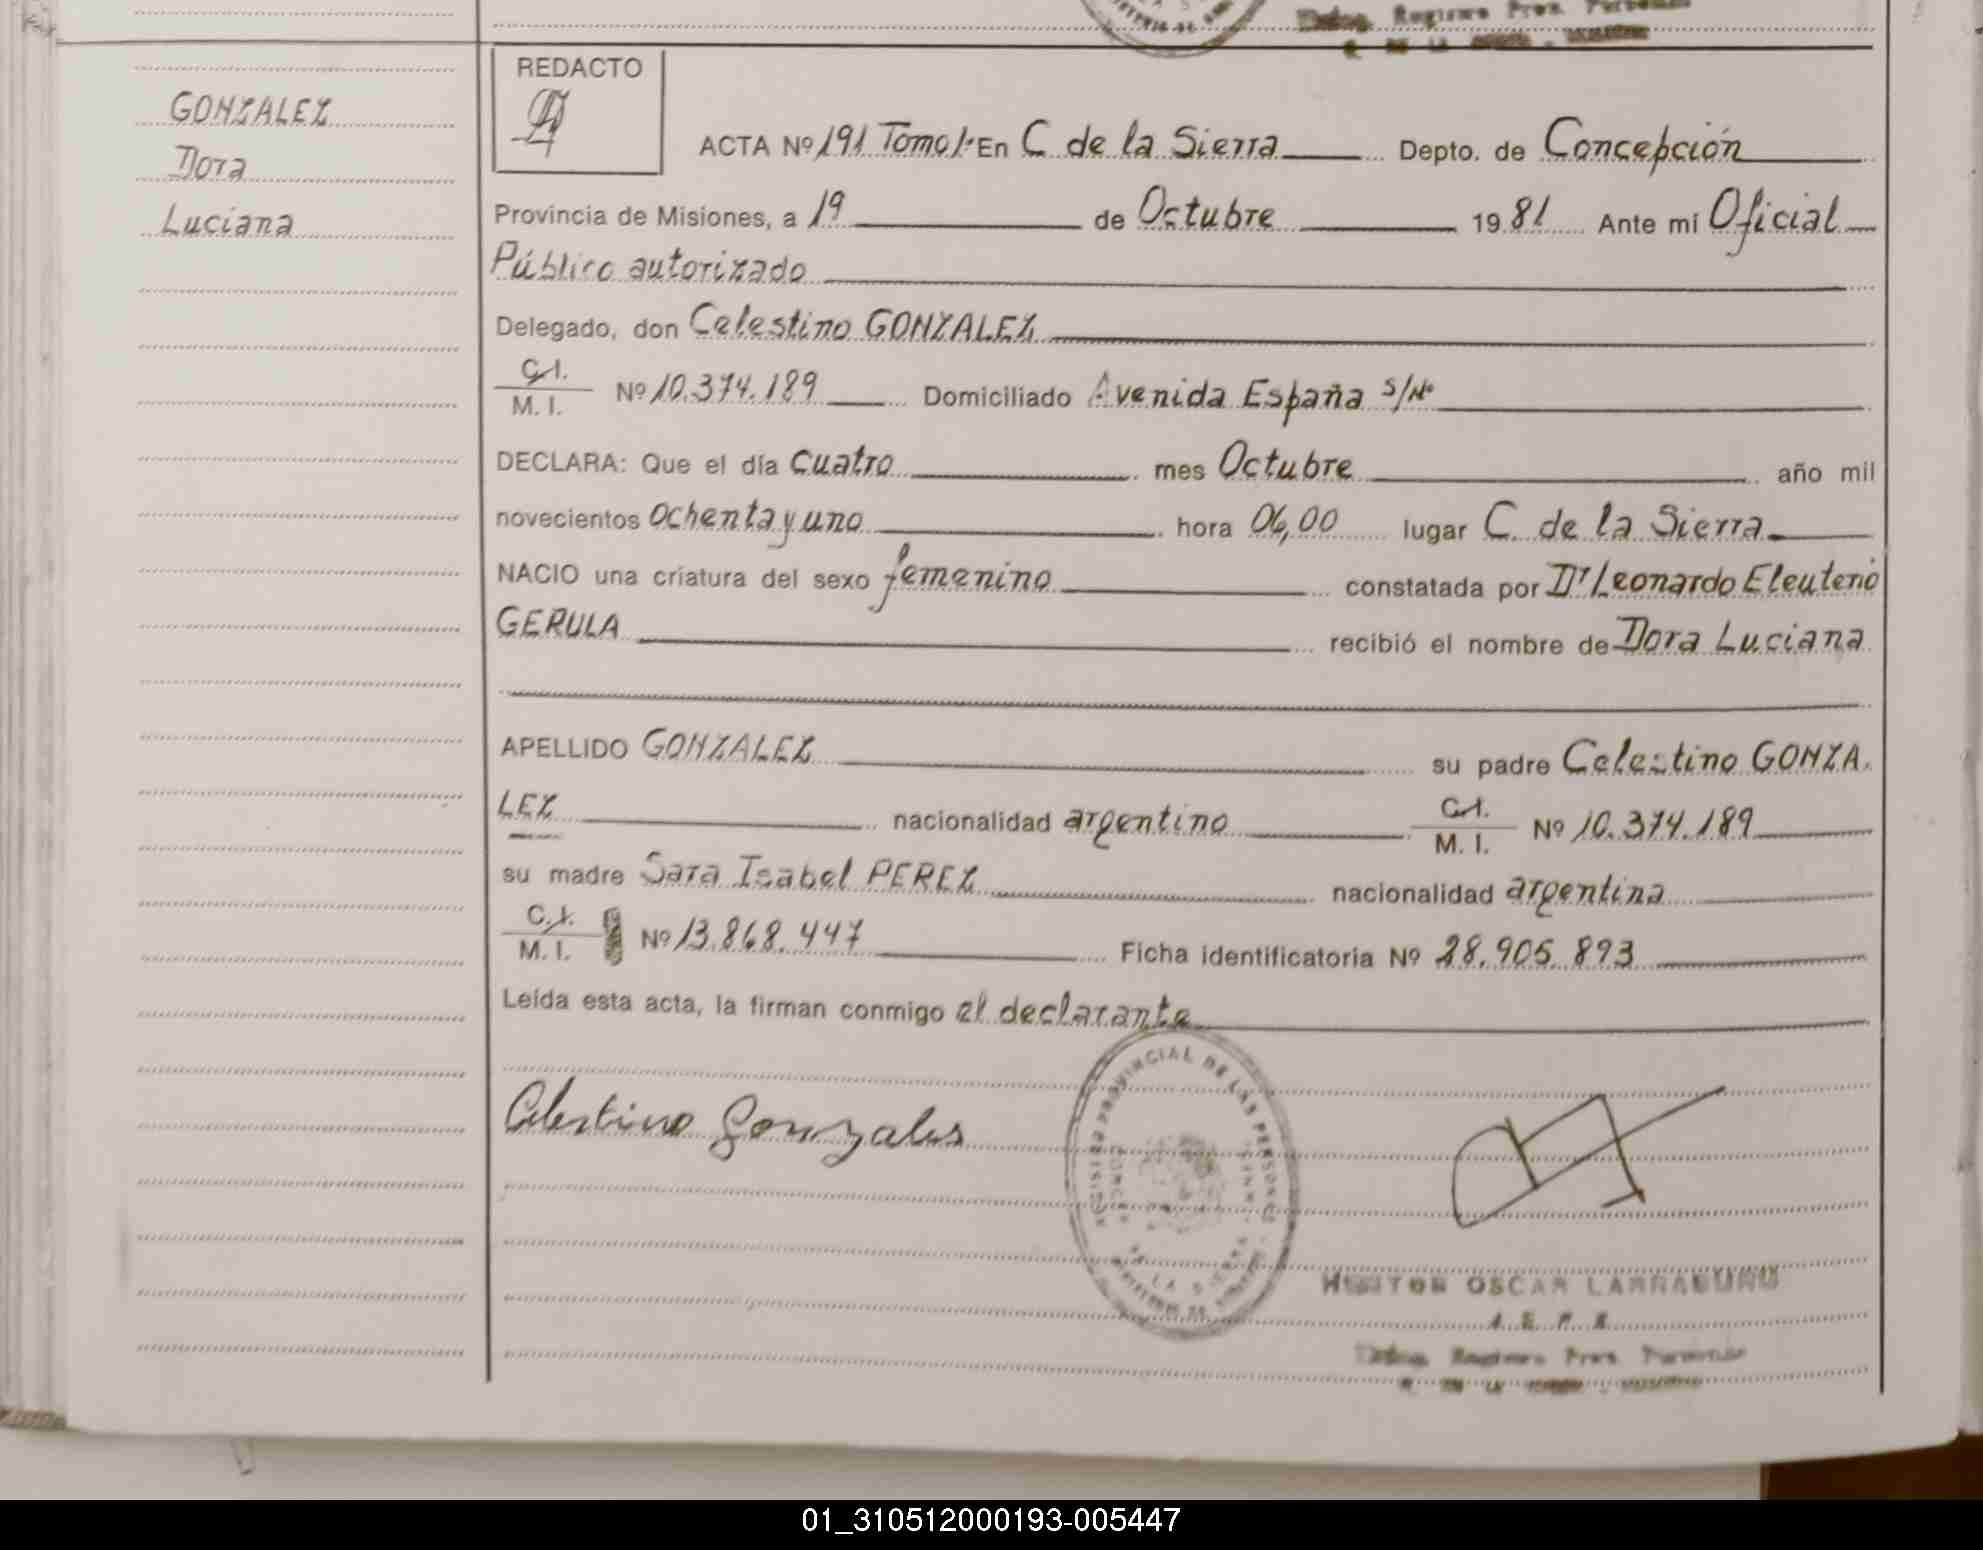 GONZALEZ
Dora
Luciana
REDACTO
ACTA Nº 191 Tomo 1· En C de la Sierra Depto. de Concepción
Provincia de Misiones, a 19 de Octubre 1981 Ante mí Oficial
Público autorizado
Delegado, don Celestino GONZALEZ
C.I.
M. I. Nº 10.374.189 Domiciliado Avenida España S/Nº
DECLARA: Que el día cuatro mes Octubre año mil
novecientos ochenta y uno hora 06,00 lugar C. de la Sierra
NACIO una criatura del sexo femenino constatada por Dr Leonardo Eleuterio
GERULA recibió el nombre de Dora Luciana
APELLIDO GONZALEZ su padre Celestino GONZA-
LEZ nacionalidad argentino C.I.
M. I. Nº 10.374.189
su madre Sara Isabel PEREZ nacionalidad argentina
C.I.
M. I. Nº 13.868.447 Ficha identificatoria Nº 28.905.893
Leída esta acta, la firman conmigo el declarante
Celestino Gonzales
PROVINCIAL DE LAS PERSONAS
OSCAR
01_310512000193-005447